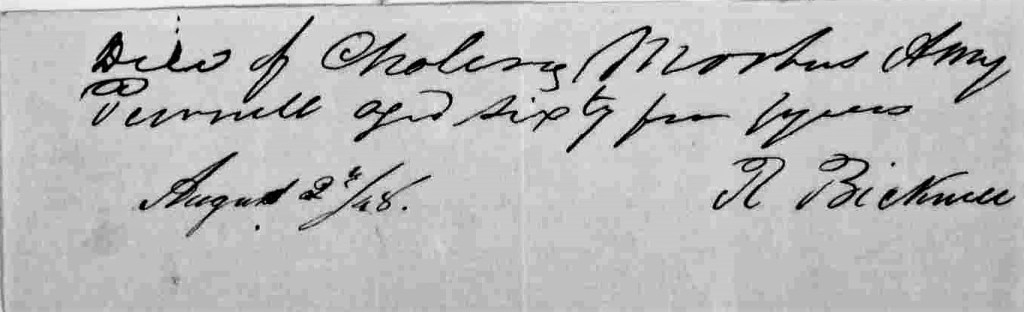 Died of Cholery Morbus Amy
Punnell aged sixty four years
August 2d/48.
R Bicknell